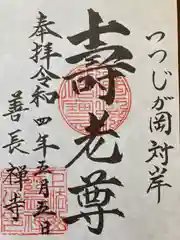 つつじが岡対岸
壽老尊
奉拝令和四年五月三日
善長禅寺